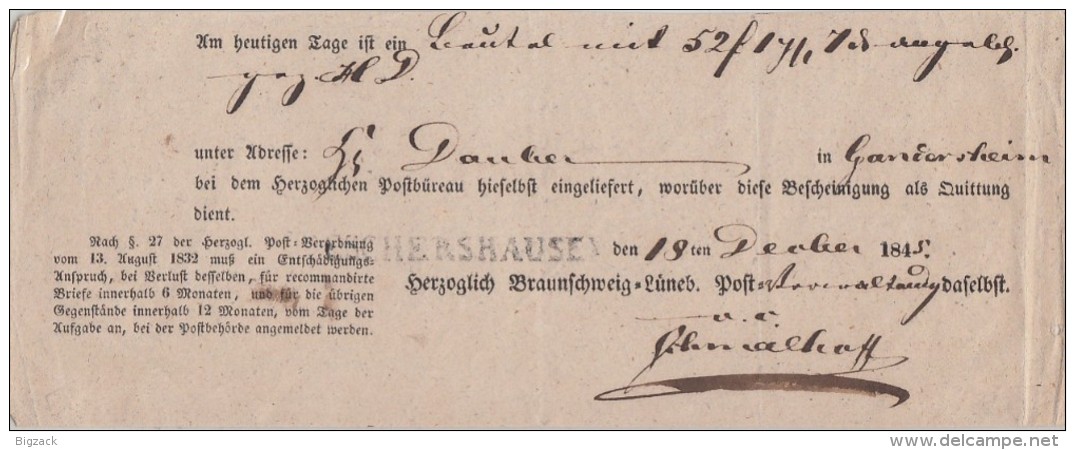 Am heutigen Tage ist ein Beutel mit 52
gez. H D.
unter Adresse: Dauber in Gandersheim
bei dem Herzoglichen Postbüreau hieselbst eingeliefert, worüber diese Bescheinigung als Quittung
dient.
Nach §. 27 der Herzogl. Post-Verordnung
vom 13. August 1832 muß ein Entschädigungs-
Anspruch, bei Verlust desselben, für recommandirte
Briefe innerhalb 6 Monaten, und für die übrigen
Gegenstände innerhalb 12 Monaten, vom Tage der
Aufgabe an, bei der Postbehörde angemeldet werden.
ESCHERSHAUSEN
den 18ten December 1845.
Herzoglich Braunschweig-Lüneb. Post-Verwaltung daselbst.
Bigzack
www.delcampe.net